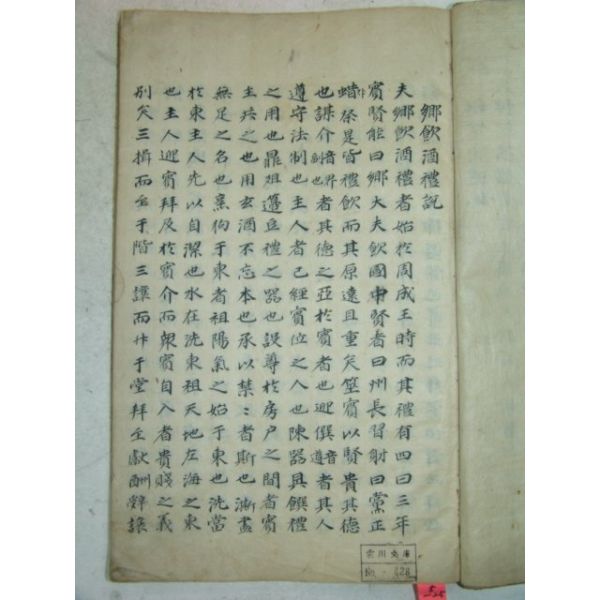 鄕飮酒禮說
夫鄕飮酒禮者始於周成王時而其禮有四曰三年
賓賢能曰鄕大夫飮國中賢者曰州長習射曰黨正
蜡祭是皆禮飮而其原遠且重矣筮賓以賢貴其德
也謀介音界副也者其德之亞於賓者也迎僎音遵者其人
遵守法制也主人者已經賓位之人也陳器具饌禮
之用也鼎俎籩豆禮之器也設尊於房戶之間者賓
主共之也用玄酒不忘本也承以禁禁者斯也澌盡
無足之名也烹狗于東者祖陽氣之始于東也洗當
於東主人先以自潔也水在洗東祖天地左海之東
也主人迎賓拜及於賓介而衆賓自入者貴賤之義
別矣三揖而至于階三讓而升于堂拜至獻酬辭讓
雲川文庫
No. 628